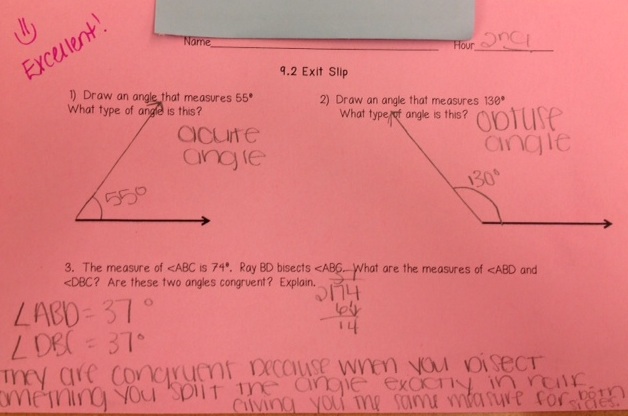 Excellent!
Name
Hour 2nd
9.2 Exit Slip
1) Draw an angle that measures 55°
What type of angle is this?
acute
angle
55°
2) Draw an angle that measures 130°
What type of angle is this?
obtuse
angle
130°
3. The measure of <ABC is 74°. Ray BD bisects <ABC. What are the measures of <ABD and
<DBC? Are these two angles congruent? Explain.
37
2)74
14
∠ABD = 37°
∠DBC = 37°
They are congruent because when you bisect
something you split the angle exactly in half
giving you the same measure for both
sides.